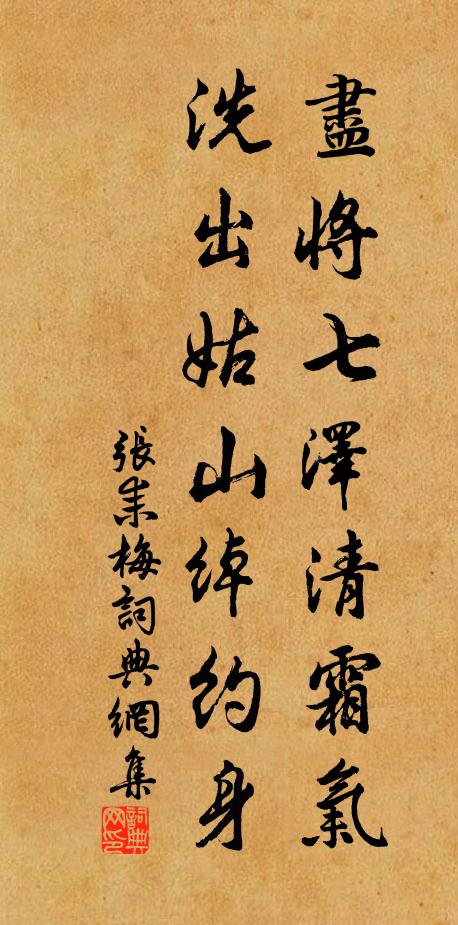 盡將七澤清霜氣
洗出姑山綽約身
張耒梅詞典網集
詞典網印